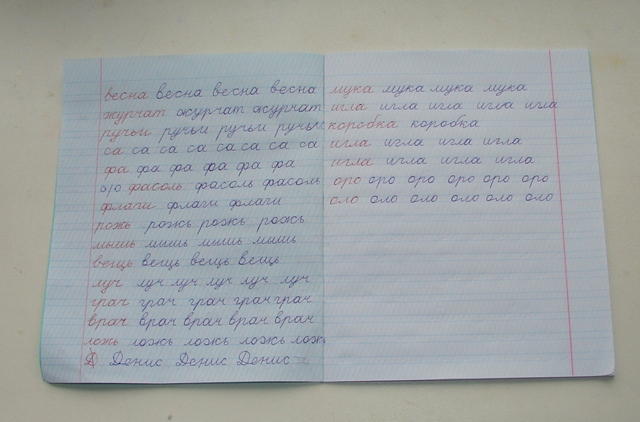 весна весна весна весна
журчат журчат журчат
ручьи ручьи ручьи ручьи
са са са са са са са са
фа фа фа фа фа фа
о/о фасоль фасоль фасоль
флаги флаги флаги
рожь рожь рожь рожь
мышь мышь мышь мышь
вещь вещь вещь вещь
луч луч луч луч луч луч
грач грач грач грач грач
врач врач врач врач врач
ложь ложь ложь ложь ложь
Д Денис Денис Денис
мука мука мука мука
игла игла игла игла игла
коробка коробка
игла игла игла игла
игла игла игла игла
оро оро оро оро оро оро
оло оло оло оло оло оло